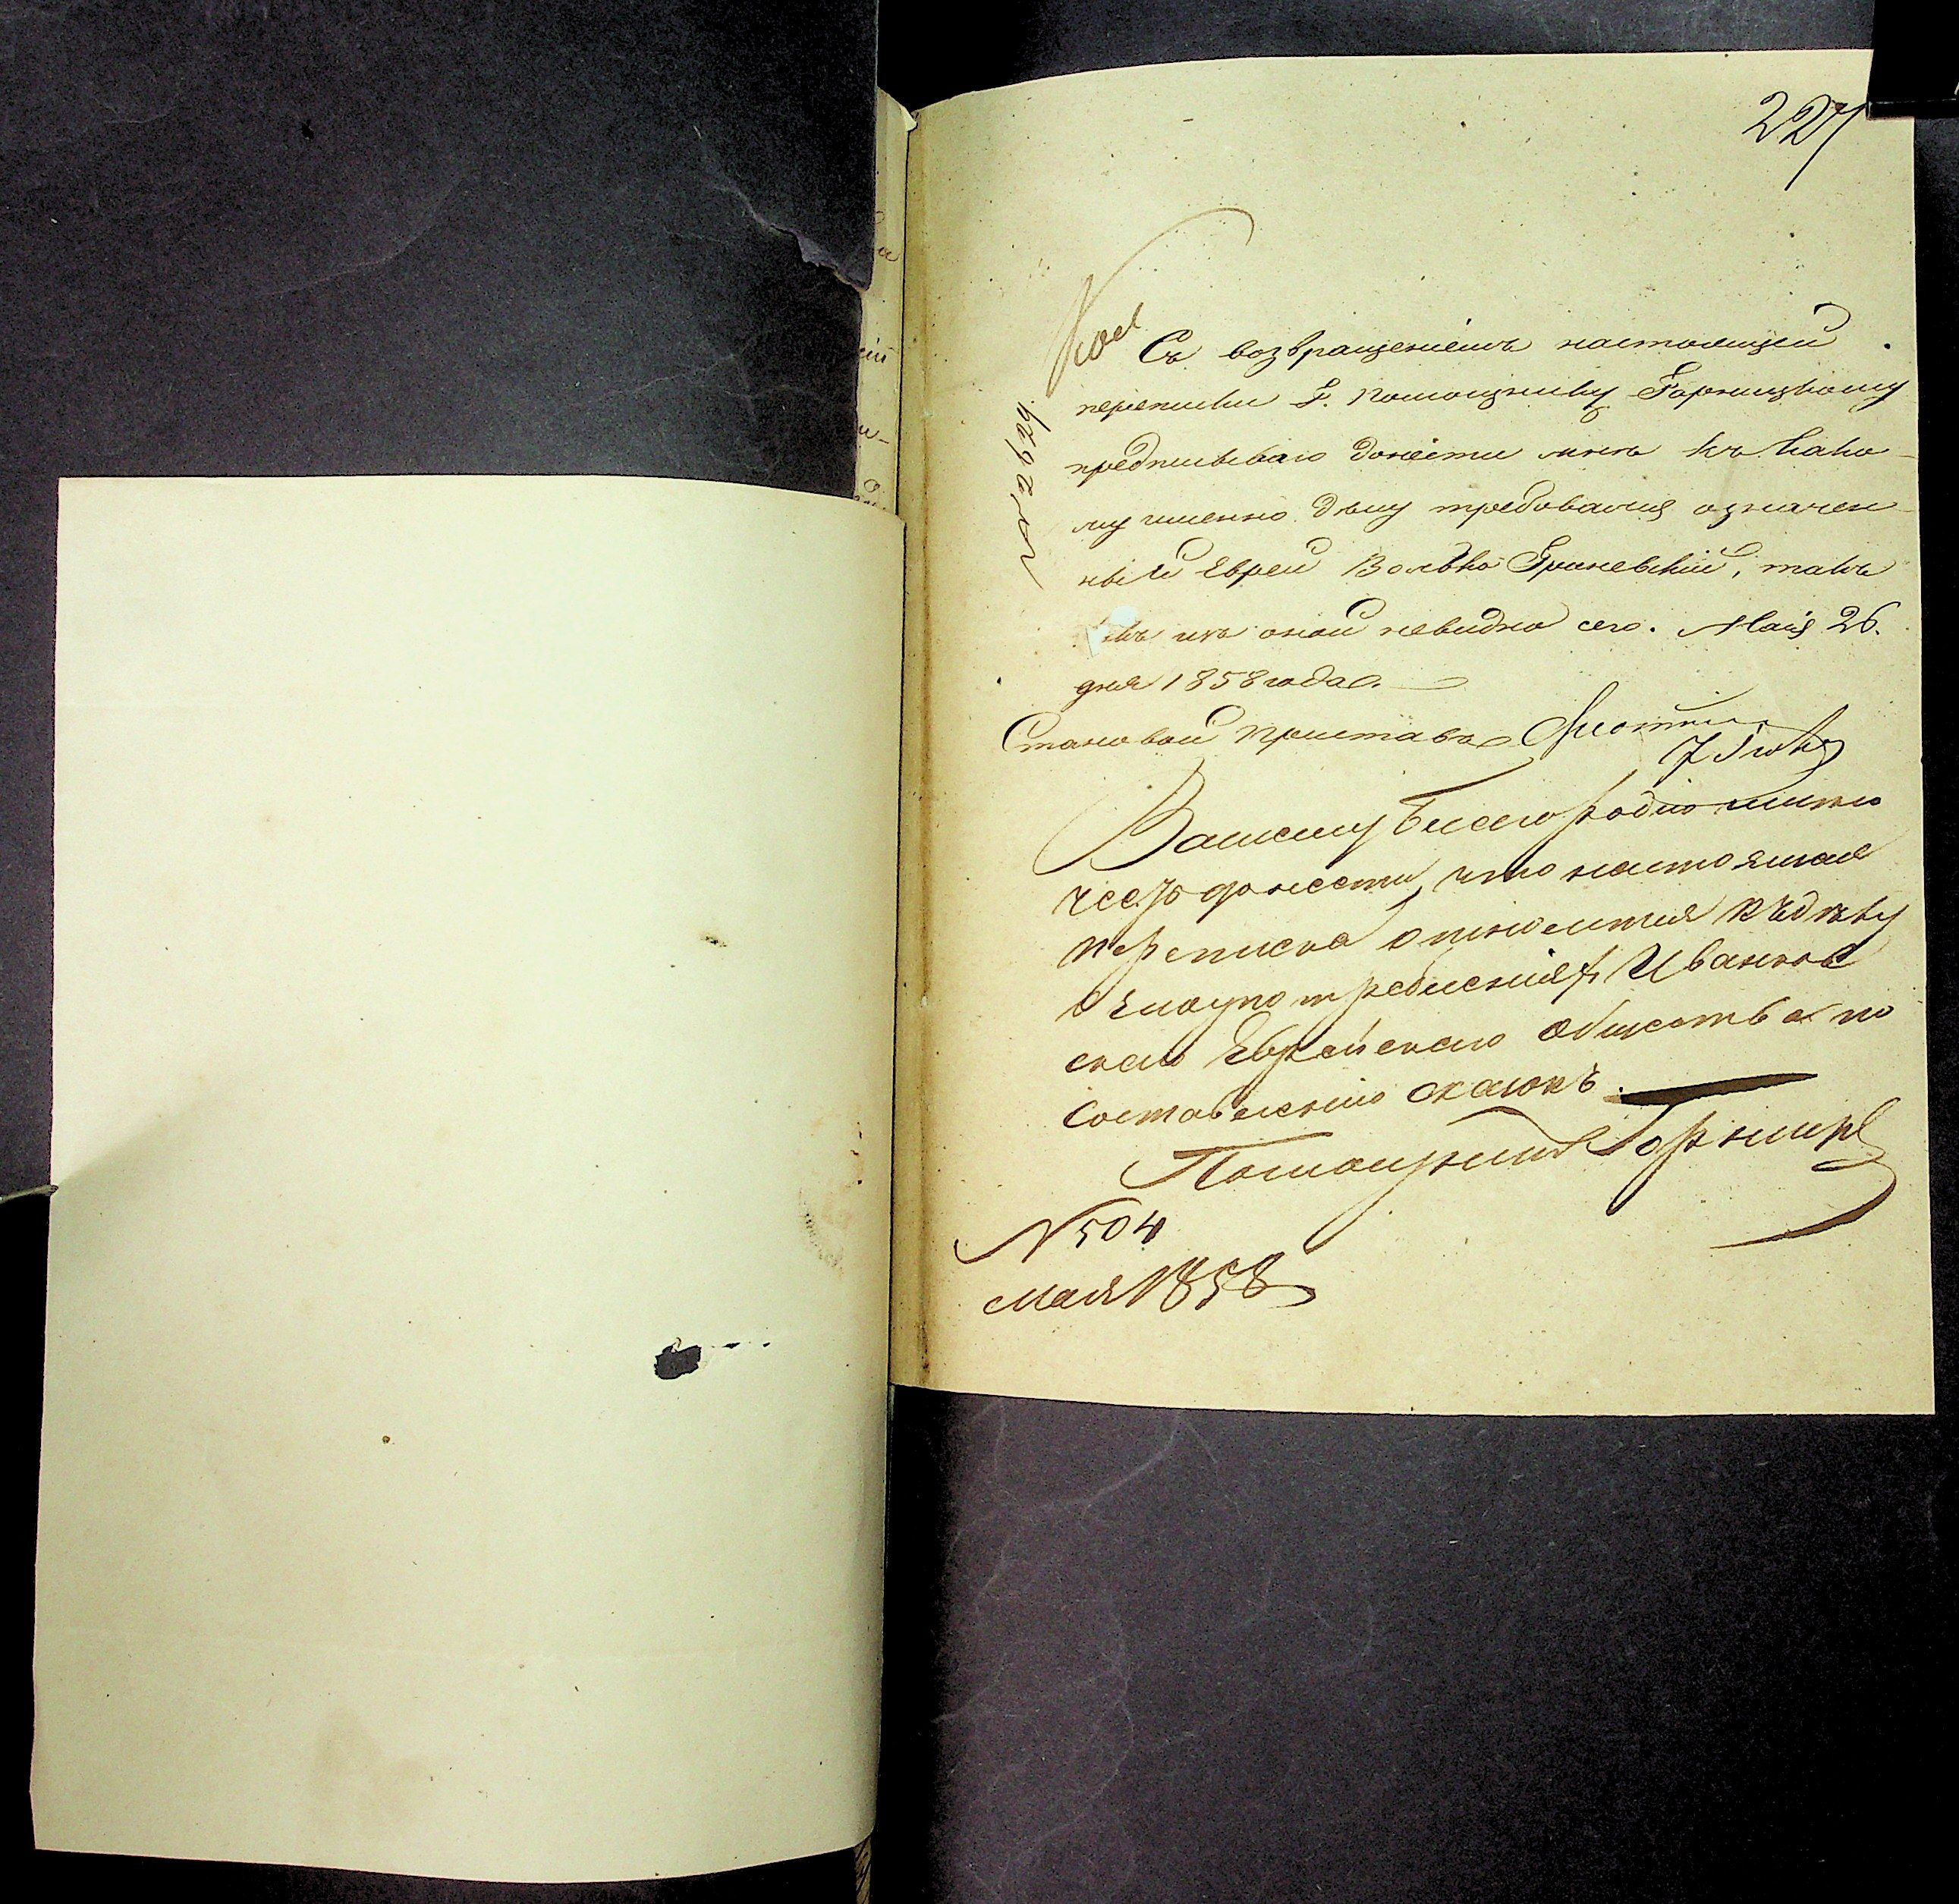 227
Съ возвращеніемъ настоящей
переписки Г. Помощнику Горницкому
предписываю донести мнѣ къ како-
му именно дѣлу требовался означен-
ный Еврей Волько Гриневскій, такъ
какъ изъ оной невидно сего. Маія 26.
дня 1858 года.
Становой Приставъ
Вашему Благородію имѣю
честь донести, что настоящая
переписка относится къ дѣлу
о злоупотребленіях Иванков
скаго Еврейскаго общества по
составленію сказокъ.
Помощникъ
N 504
мая 1858